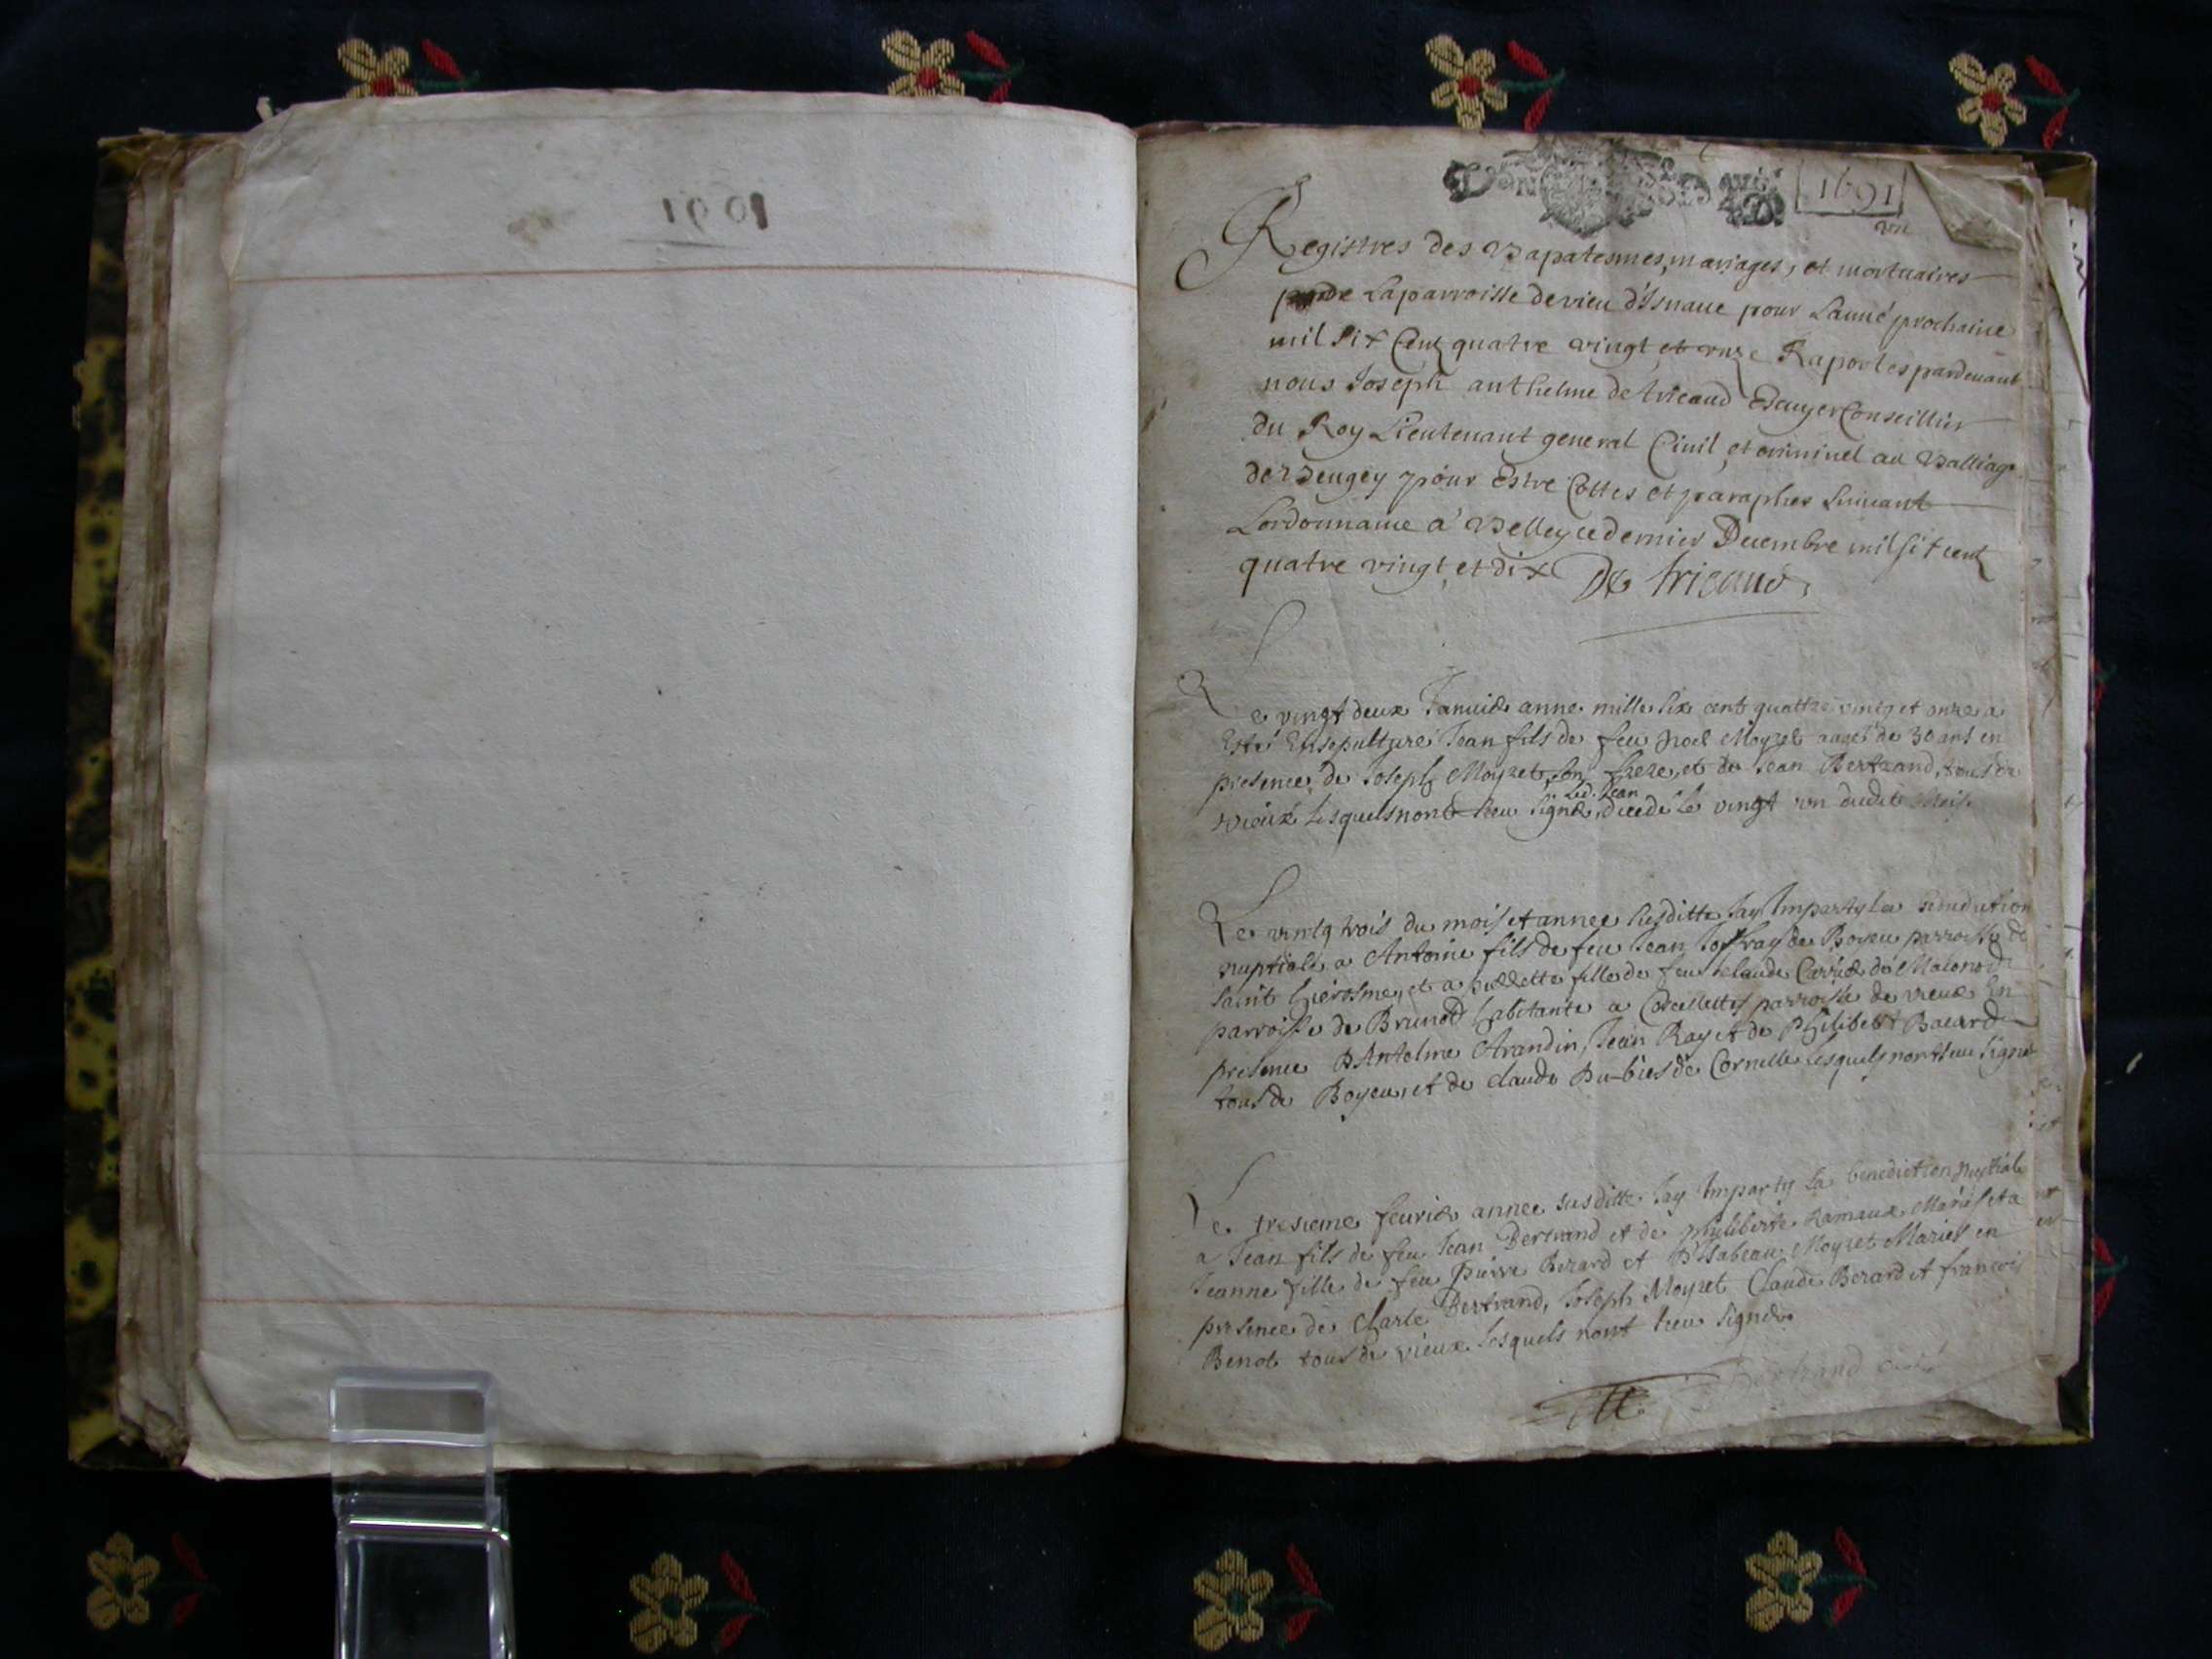 1691
1691
un
Registres des Bapatesmes, mariages, et mortuaires
de La parroisse de vieu d'Isnave pour Lanné prochaine
mil six Cent quatre vingt et onze Raportes pardevant
nous Joseph anthelme de tricaud Escuyer Conseillier
du Roy Lieutenant general Civil et criminel au Balliage
de Beugey pour Estre Cottes et paraphes suivant
Lordonnance a Belley ce dernier Decembre mil six cent
quatre vingt et dix De tricaud
Le vingt deux Janvier anne mille six cent quattre vintg et onze a
Esté Ensepulturé Jean fils de feu Noel Moyret aagé de 30 ans en
presence de Joseph Moyret son frere, et de Jean Bertrand, tous de
Led. Jean
vieux lesquels nont sceu signer, decedé le vingt un dudit Mois
Le vintg trois du mois et annee susditte Jay Imparty la benediction
nuptiale a Antoine fils de feu Jean Joffray de Boyeu parroisse de
saint hierosme, et a fille de feu claude Carrier de
parroisse de Brunod habitante a Corcellettes parroisse de vieux En
presence D'Antelme Arandin, Jean Ray et de Philibert Bacard
tous de Boyeu, et de claude Du-bies de Cornelle Lesquels nont sceu signer
Le tresieme feurier annee susditte Jay Imparty La benediction nuptiale
a Jean fils de feu Jean Bertrand et de philiberte Ramaux Mariés et a
Jeanne fille de feu pierre Berard et D'Isabeau Moyret Mariés en
presence de Charle Bertrand, Joseph Moyret Claude Berard et francois
Benot tous de vieux lesquels nont sceu signer.
Bertrand curé